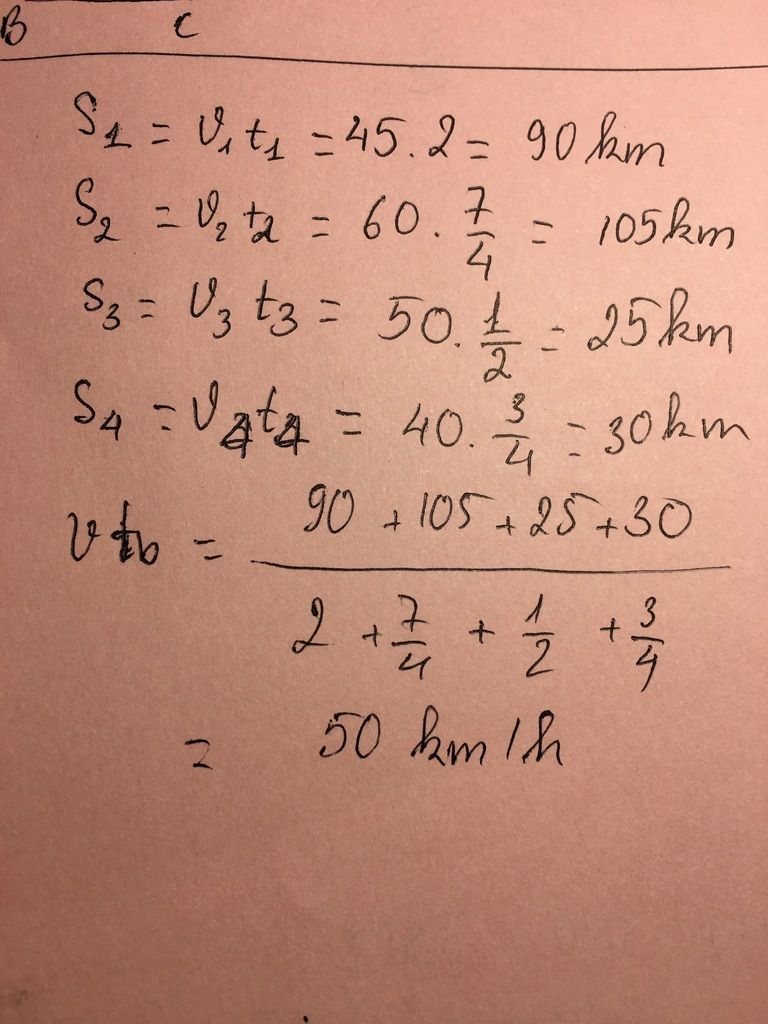 B C
S₁ = v₁ t₁ = 45 . 2 = 90 km
S₂ = v₂ t₂ = 60 . 7/4 = 105 km
S₃ = v₃ t₃ = 50 . 1/2 = 25 km
S₄ = v₄ t₄ = 40 . 3/4 = 30 km
vtb = (90 + 105 + 25 + 30)/(2 + 7/4 + 1/2 + 3/4)
= 50 km/h